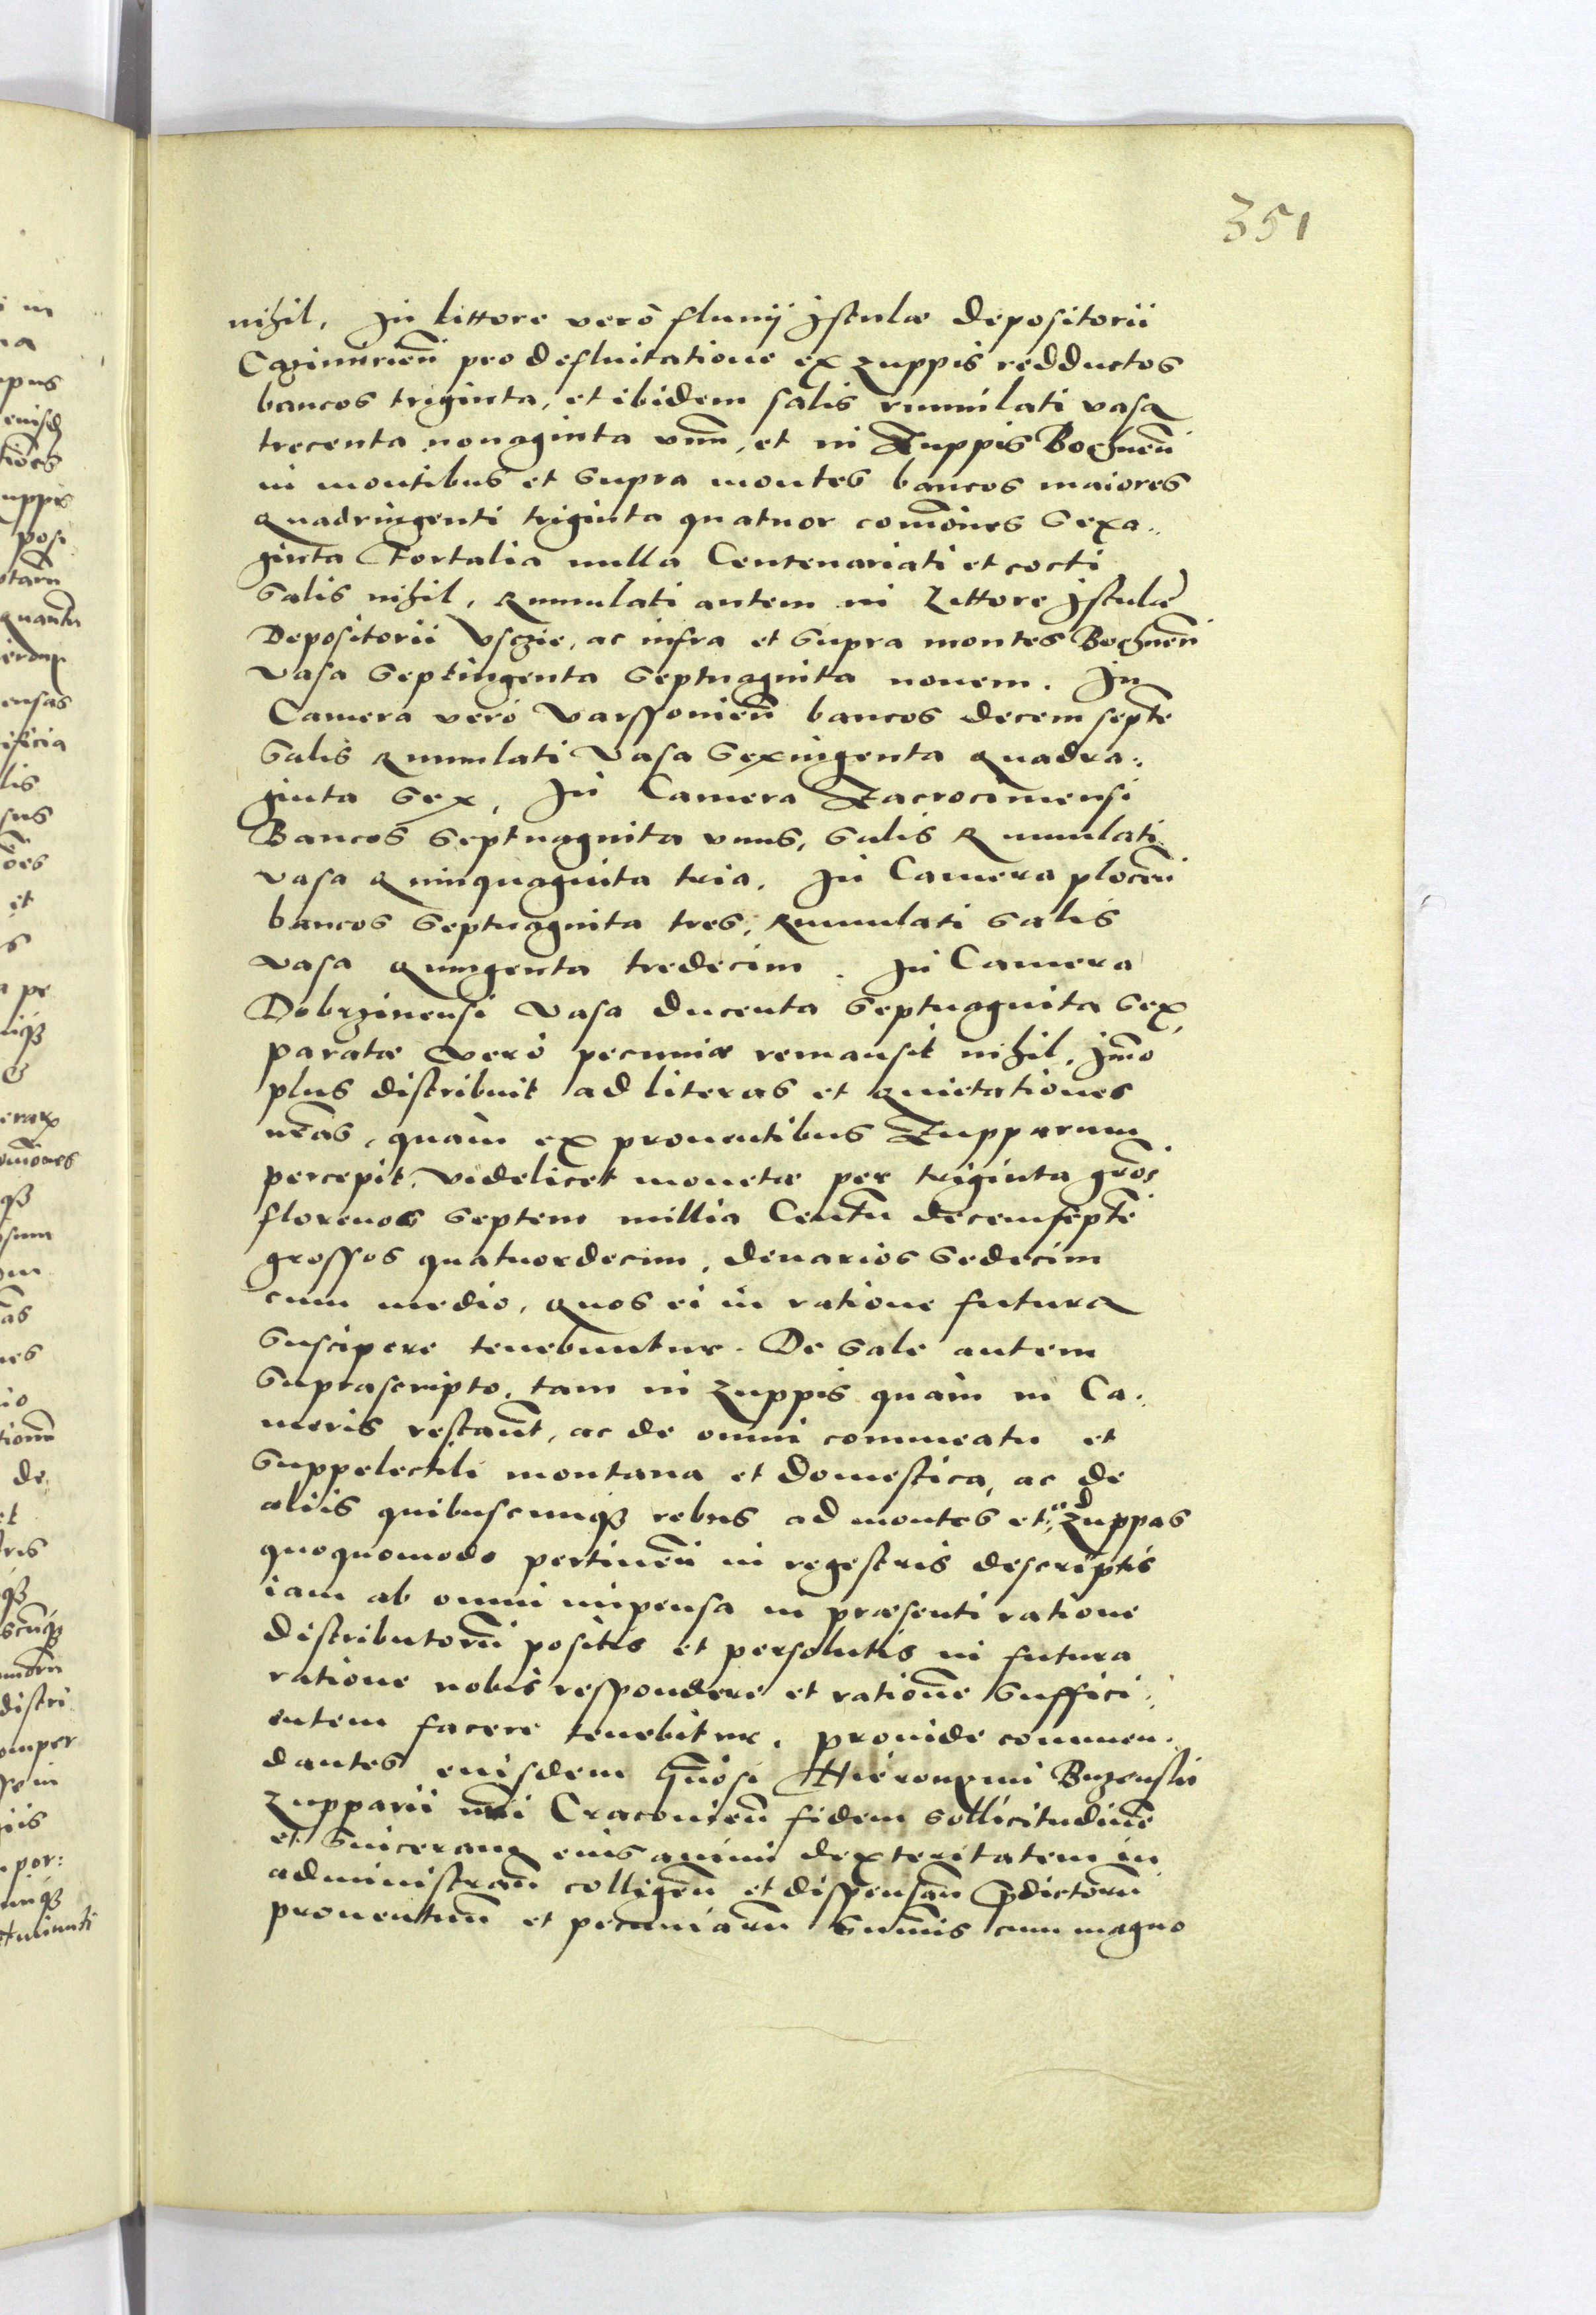 351
nihil. In littore verò fluuij Istulæ depositorii
Cazimirien̄ pro defluitatione ex zuppis redductos
bancos triginta, et ibidem salis rumulati vasa
trecenta nonaginta vnū, et in Zuppis Bochnen̄
in montibus et supra montes bancos maiores
quadringenti triginta quatuor com̄ones sexa..
ginta Fortalia nulla Centenariati et cocti
salis nihil, Rumulati autem in Littore Istulæ
Depositorii Vsczie, ac infra et supra montes Bochnen̄
vasa septingenta septuaginta nouem. In
Camera verò Varssouien̄ bancos decem septē
salis Rumulati vasa sexingenta quadra:
ginta sex, In Camera Zacrocimensi
Bancos septuaginta vnus, salis Rumulati
vasa quinquaginta tria. In Camera plocen̄
bancos septuaginta tres, Rumulati salis
vasa quingenta tredecim. In Camera
Dobrzinensi vasa ducenta septuaginta sex,
paratæ verò pecuniæ remansit nihil, Im̄o
plus distribuit ad literas et quietationes
nr̄as, quàm ex prouentibus Zupparum
percepit, videlicet monetæ per triginta gros̄
florenos septem millia Centū decemseptē
grossos quatuordecim, denarios sedecim
cum medio, quos ei in ratione futura
suscipere tenebuntur. De sale autem
suprascripto, tam in zuppis quàm in Ca:
meris restan̄t, ac de omni commeatu et
suppelectili montana et domestica, ac de
aliis quibuscunqȝ rebus ad montes et ad zuppas
quoquomodo pertinen̄ in regestris descriptis
iam ab omni impensa in præsenti ratione
distributorū positis et persolutis in futura
ratione nobis respondere et rationē suffici:
entem facere tenebitur. prouide commen:
dantes eiusdem Gn̄osi Hieronymi Buzenski
Zupparii nr̄i Cracouien̄ fidem sollicitudinē
et synceram eius animi dexteritatem in
administran̄ colligen̄ et dispensan̄ p̄dictorū
prouentuū et pecuniarū sum̄is cum magno